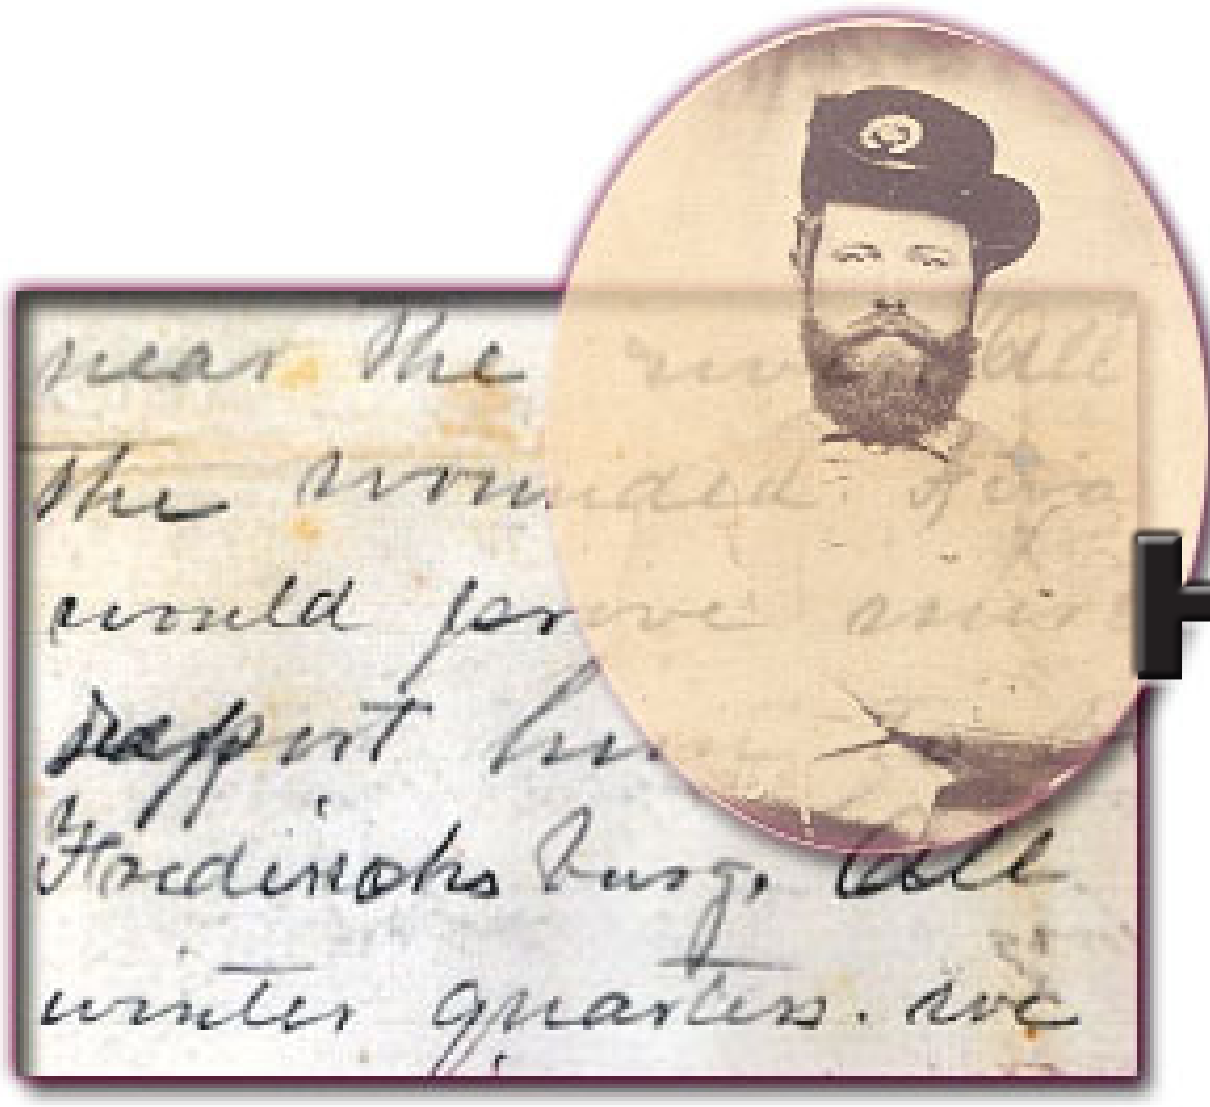 near the river. all
the wounded.
would prove more
support him
Fredericks burg. all
winter quarters. we